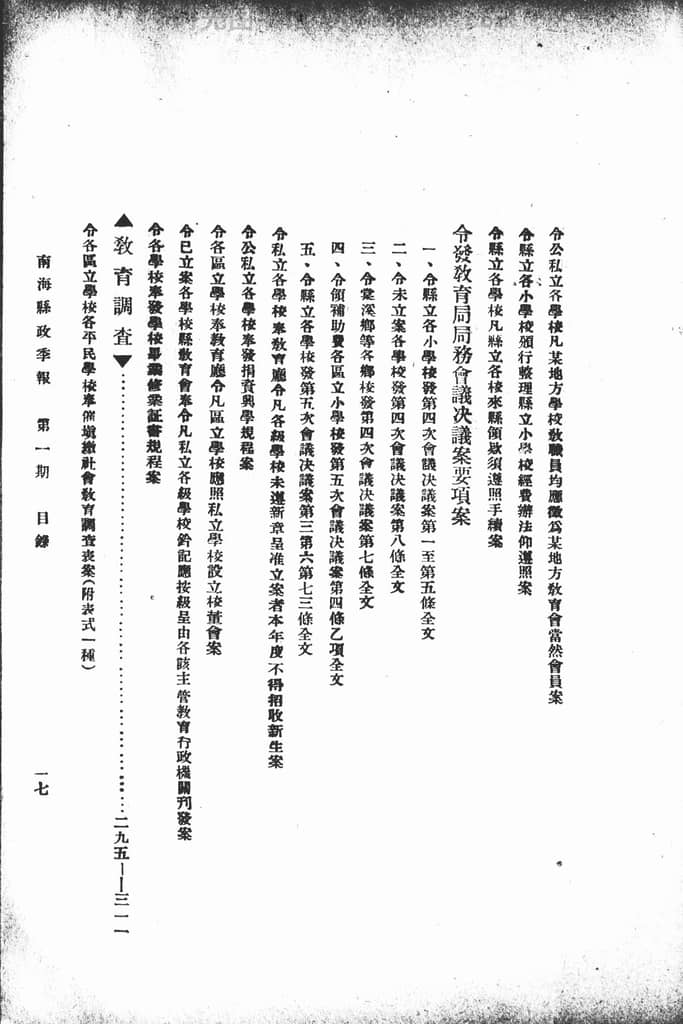 令公私立各學校凡某地方學校敎職員均應徵爲某地方敎育會當然會員案
令縣立各小學校頒行整理縣立小學校經費辦法仰遵照案
令縣立各學校凡縣立各校來縣領欵須遵照手續案
令發敎育局局務會議決議案要項案
一、令縣立各小學校發第四次會議決議案第一至第五條全文
二、令未立案各學校發第四次會議決議案第八條全文
三、令棠溪鄉等各鄉校發第四次會議決議案第七條全文
四、令領補助費各區立小學校發第五次會議決議案第四條乙項全文
五、令縣立各學校發第五次會議決議案第三第六第七三條全文
令私立各學校奉敎育廳令凡各級學校未遵新章呈准立案者本年度不得招收新生案
令公私立各學校奉發捐資興學規程案
令各區立學校奉敎育廳令凡區立學校應照私立學校設立校董會案
令已立案各學校縣敎育會奉令凡私立各級學校鈐記應按級呈由各該主管敎育行政機關刋發案
令各學校奉發學校畢業修業証書規程案
▲敎育調查▼……二九五——三一一
令各區立學校各平民學校奉催塡繳社會敎育調查表案(附表式一種)
南海縣政季報 第一期 目錄 一七